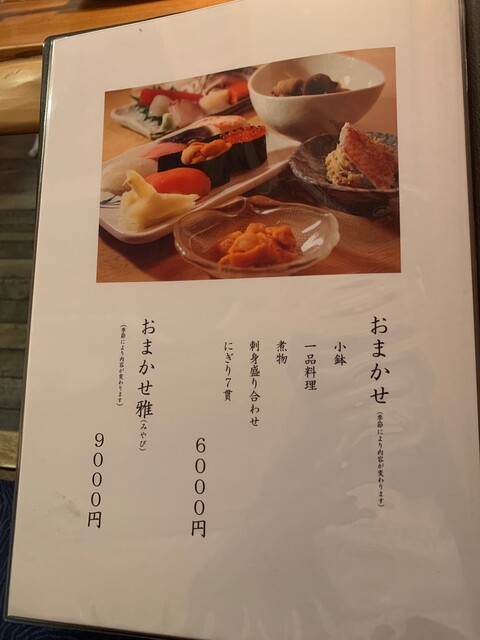 おまかせ(季節により内容が変わります)
小鉢
一品料理
煮物
刺身盛り合わせ
にぎり7貫
6000円
おまかせ雅(みやび)
(季節により内容が変わります)
9000円